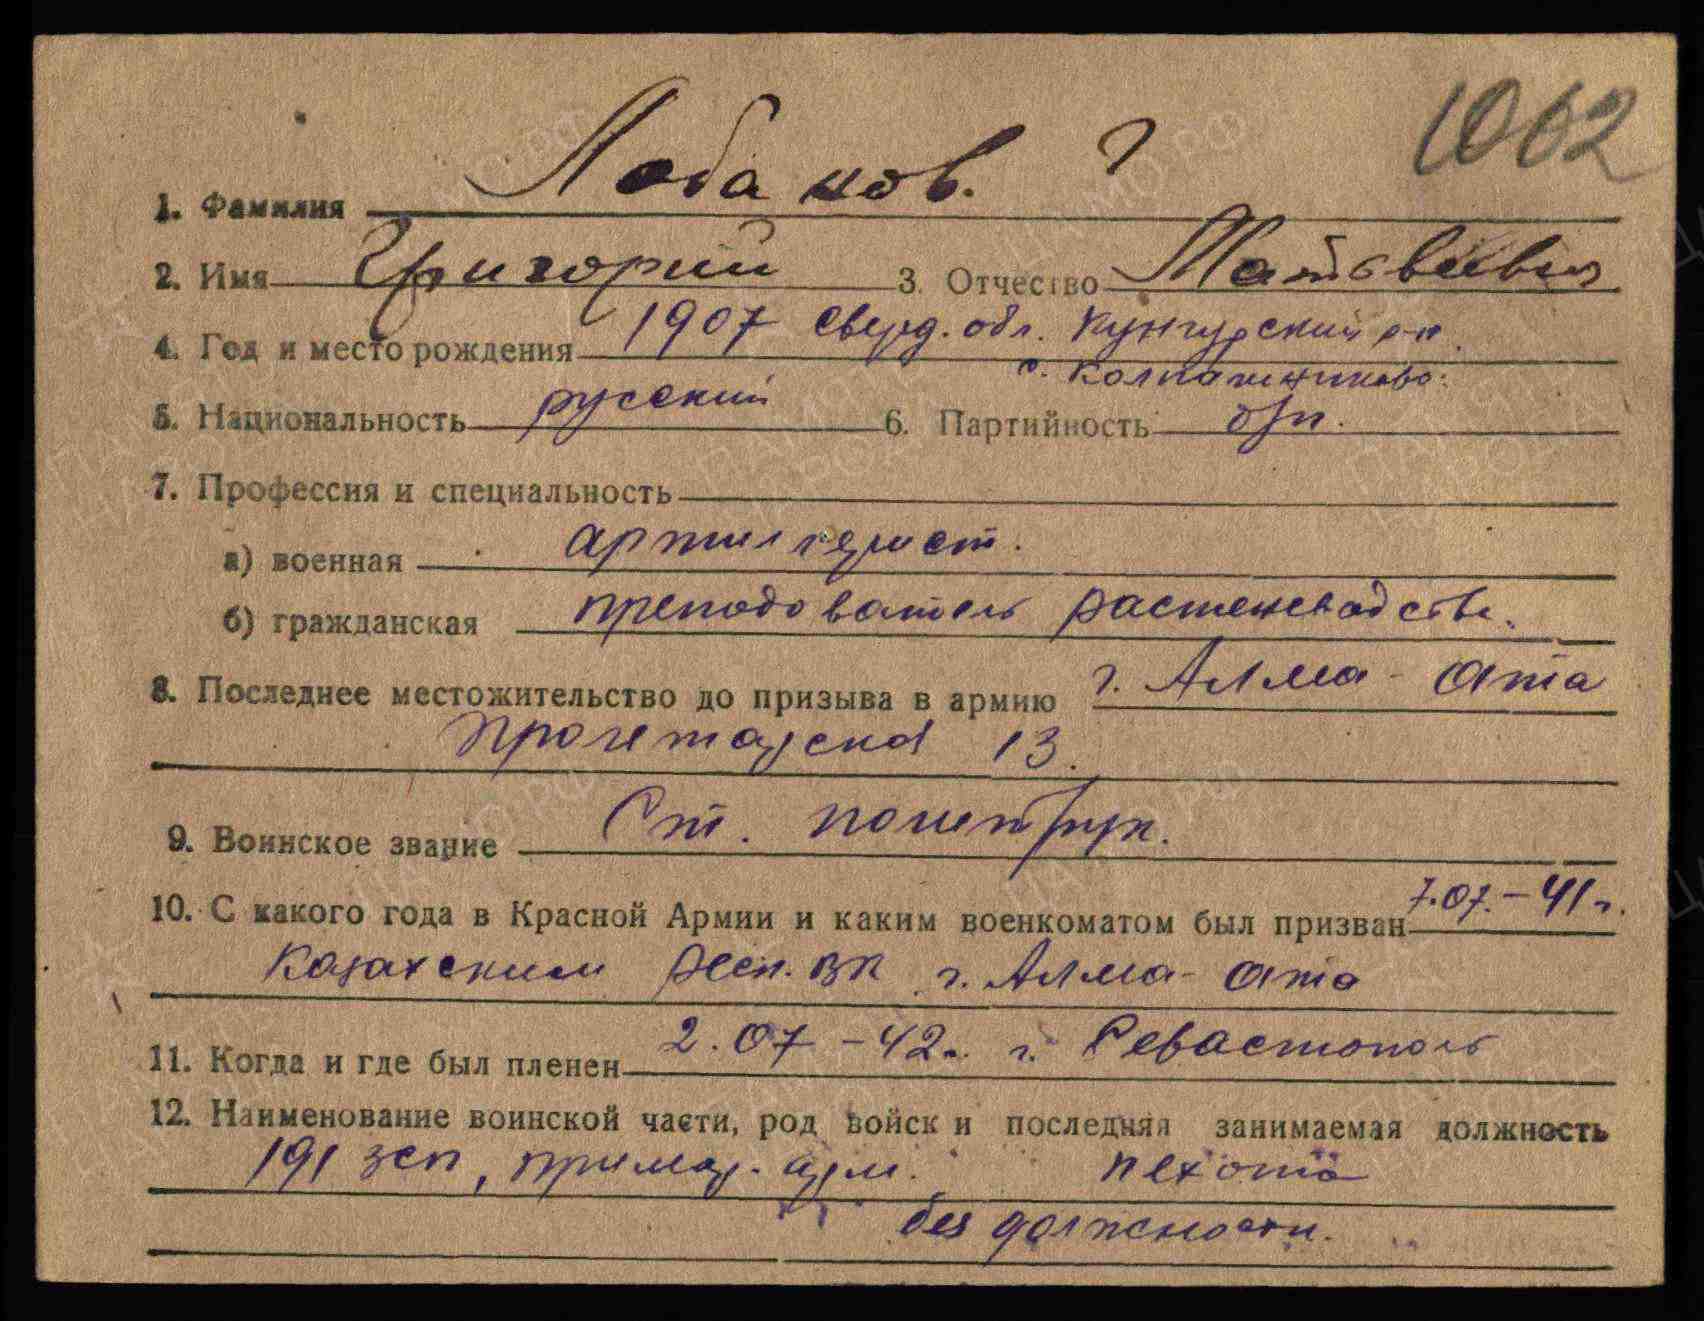 1062
1. Фамилия Лобанов. ?
2. Имя Григорий 3. Отчество Матвеевич
4. Год и место рождения 1907 Сверд. обл. Кунгурский р-н.
с. Колпашниково.
5. Национальность русский 6. Партийность б/п.
7. Профессия и специальность
а) военная артиллерист.
б) гражданская преподователь растеневодств.
8. Последнее местожительство до призыва в армию г. Алма-Ата
Пролетарская 13.
9. Воинское звание Ст. политрук.
10. С какого года в Красной Армии и каким военкоматом был призван 7.07.-41г.
Казахским Респ. ВК г. Алма-Ата
11. Когда и где был пленен 2.07-42г. г. Севастополь
12. Наименование воинской части, род войск и последняя занимаемая должность
191 зсп, примор. арм. пехота
без должности.